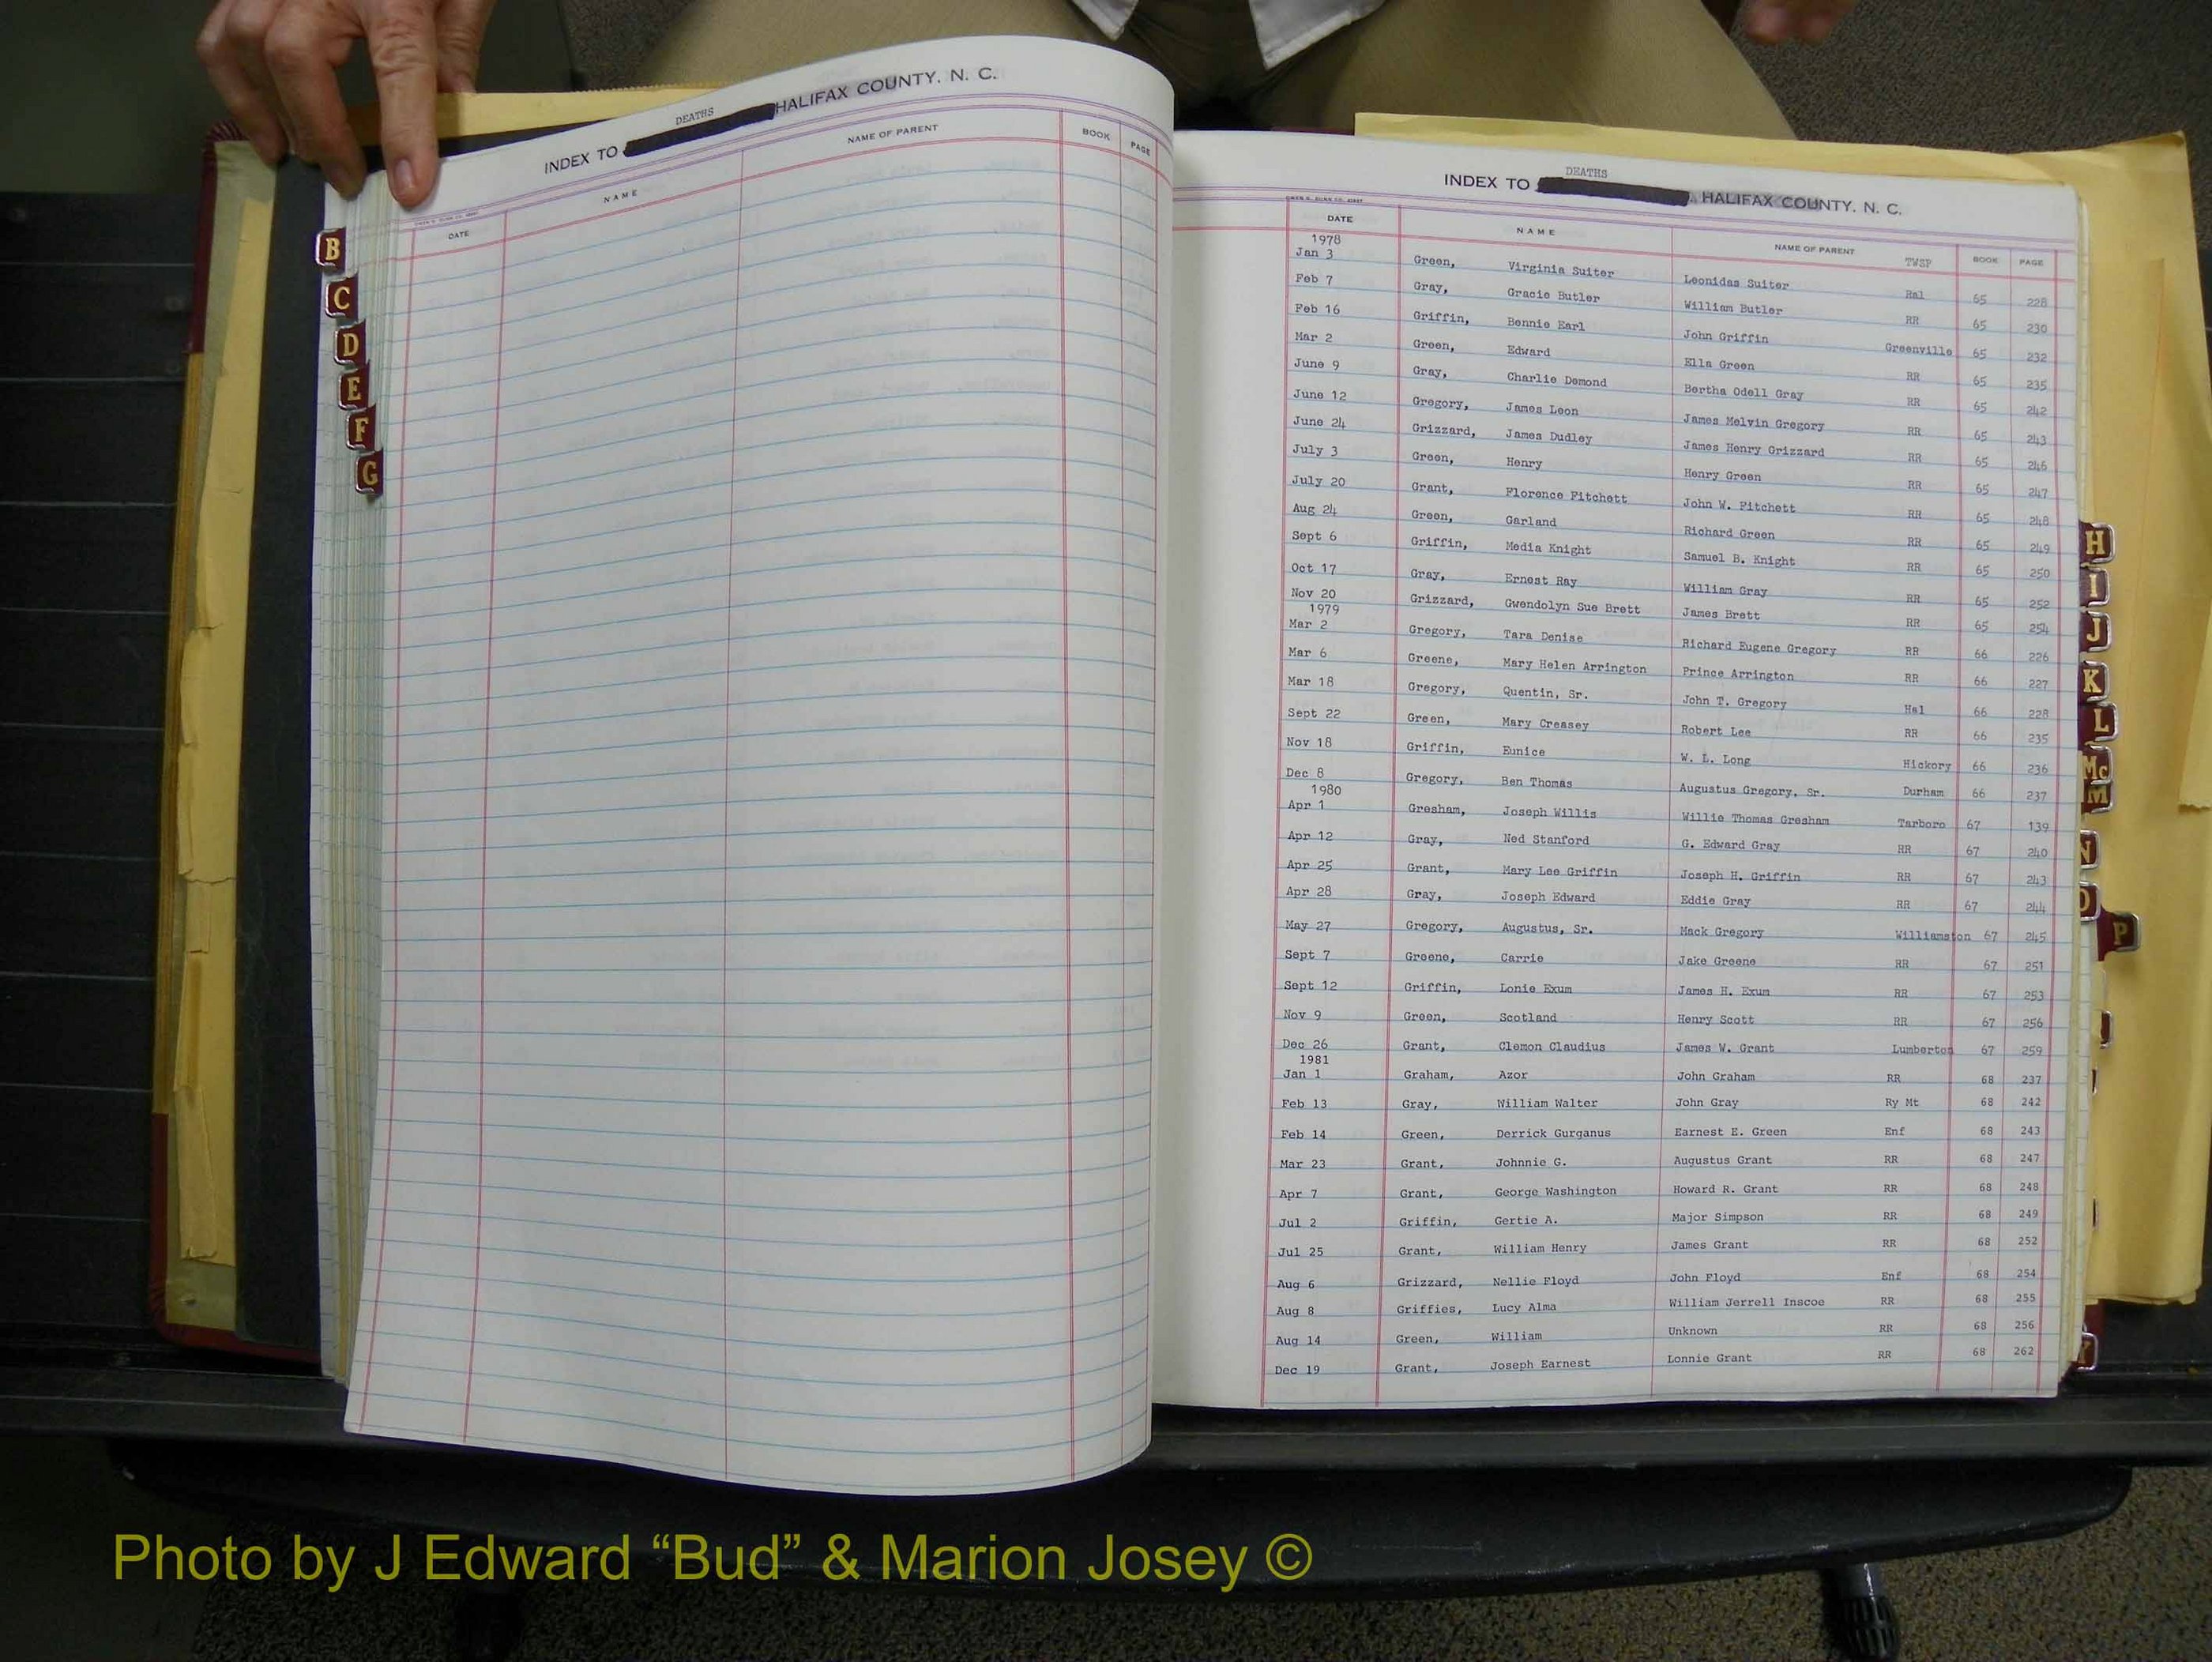 INDEX TO DEATHS HALIFAX COUNTY, N. C.
DATE NAME NAME OF PARENT BOOK PAGE
B
C
D
E
F
G
INDEX TO DEATHS HALIFAX COUNTY, N. C.
DATE NAME NAME OF PARENT TWSP BOOK PAGE
1978
Jan 3 Green, Virginia Suiter Leonidas Suiter Ral 65 228
Feb 7 Gray, Gracie Butler William Butler RR 65 230
Feb 16 Griffin, Bennie Earl John Griffin Greenville 65 232
Mar 2 Green, Edward Ella Green RR 65 235
June 9 Gray, Charlie Demond Bertha Odell Gray RR 65 242
June 12 Gregory, James Leon James Melvin Gregory RR 65 243
June 24 Grizzard, James Dudley James Henry Grizzard RR 65 246
July 3 Green, Henry Henry Green RR 65 247
July 20 Grant, Florence Fitchett John W. Fitchett RR 65 248
Aug 24 Green, Garland Richard Green RR 65 249
Sept 6 Griffin, Media Knight Samuel B. Knight RR 65 250
Oct 17 Gray, Ernest Ray William Gray RR 65 252
Nov 20 Grizzard, Gwendolyn Sue Brett James Brett RR 65 254
1979
Mar 2 Gregory, Tara Denise Richard Eugene Gregory RR 66 226
Mar 6 Greene, Mary Helen Arrington Prince Arrington RR 66 227
Mar 18 Gregory, Quentin, Sr. John T. Gregory Hal 66 228
Sept 22 Green, Mary Creasey Robert Lee RR 66 235
Nov 18 Griffin, Eunice W. L. Long Hickory 66 236
Dec 8 Gregory, Ben Thomas Augustus Gregory, Sr. Durham 66 237
1980
Apr 1 Gresham, Joseph Willis Willie Thomas Gresham Tarboro 67 139
Apr 12 Gray, Ned Stanford G. Edward Gray RR 67 240
Apr 25 Grant, Mary Lee Griffin Joseph H. Griffin RR 67 243
Apr 28 Gray, Joseph Edward Eddie Gray RR 67 244
May 27 Gregory, Augustus, Sr. Mack Gregory Williamston 67 245
Sept 7 Greene, Carrie Jake Greene RR 67 251
Sept 12 Griffin, Lonie Exum James H. Exum RR 67 253
Nov 9 Green, Scotland Henry Scott RR 67 256
Dec 26 Grant, Clemon Claudius James W. Grant Lumberton 67 259
1981
Jan 1 Graham, Azor John Graham RR 68 237
Feb 13 Gray, William Walter John Gray Ry Mt 68 242
Feb 14 Green, Derrick Gurganus Earnest E. Green Enf 68 243
Mar 23 Grant, Johnnie G. Augustus Grant RR 68 247
Apr 7 Grant, George Washington Howard R. Grant RR 68 248
Jul 2 Griffin, Gertie A. Major Simpson RR 68 249
Jul 25 Grant, William Henry James Grant RR 68 252
Aug 6 Grizzard, Nellie Floyd John Floyd Enf 68 254
Aug 8 Griffies, Lucy Alma William Jerrell Inscoe RR 68 255
Aug 14 Green, William Unknown RR 68 256
Dec 19 Grant, Joseph Earnest Lonnie Grant RR 68 262
H
I
J
K
L
Mc
M
N
O
P
Photo by J Edward “Bud” & Marion Josey ©